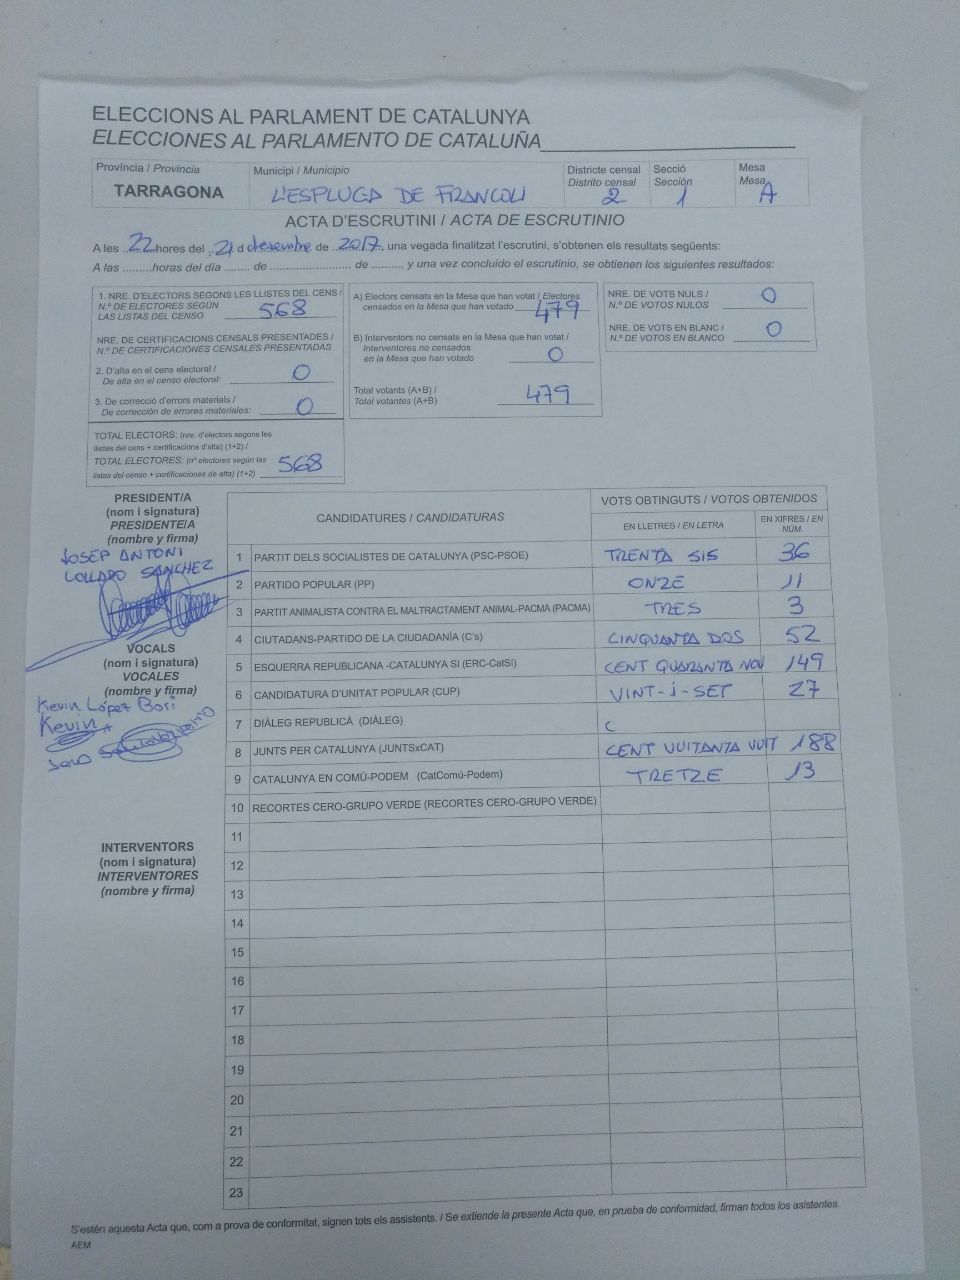 ELECCIONS AL PARLAMENT DE CATALUNYA
ELECCIONES AL PARLAMENTO DE CATALUÑA
Província / Provincia
TARRAGONA
Municipi / Municipio
L'ESPLUGA DE FRANCOLI
Districte censal
Distrito censal
2
Secció
Sección
1
Mesa
Mesa
A
ACTA D'ESCRUTINI / ACTA DE ESCRUTINIO
A les 22 hores del 21 d desembre de 2017, una vegada finalitzat l'escrutini, s'obtenen els resultats següents:
A las .........horas del día ........ de ......................... de ........., y una vez concluido el escrutinio, se obtienen los siguientes resultados:
1. NRE. D'ELECTORS SEGONS LES LLISTES DEL CENS /
N.º DE ELECTORES SEGÚN
LAS LISTAS DEL CENSO
568
NRE. DE CERTIFICACIONS CENSALS PRESENTADES /
N.º DE CERTIFICACIONES CENSALES PRESENTADAS
2. D'alta en el cens electoral /
De alta en el censo electoral:
0
3. De correcció d'errors materials /
De corrección de errores materiales:
0
TOTAL ELECTORS: (nre. d'electors segons les
llistas del cens + certificacions d'alta) (1+2) /
TOTAL ELECTORES: (nº electores según las
listas del censo + certificaciones de alta) (1+2)
568
A) Electors censats en la Mesa que han votat / Electores
censados en la Mesa que han votado
479
B) Interventors no censats en la Mesa que han votat /
Interventores no censados
en la Mesa que han votado
0
Total votants (A+B) /
Total votantes (A+B)
479
NRE. DE VOTS NULS /
N.º DE VOTOS NULOS
0
NRE. DE VOTS EN BLANC /
N.º DE VOTOS EN BLANCO
0
PRESIDENT/A
(nom i signatura)
PRESIDENTE/A
(nombre y firma)
JOSEP ANTONI
COLLADO SANCHEZ
VOCALS
(nom i signatura)
VOCALES
(nombre y firma)
Kevin López Bori
Kevin
INTERVENTORS
(nom i signatura)
INTERVENTORES
(nombre y firma)
CANDIDATURES / CANDIDATURAS
VOTS OBTINGUTS / VOTOS OBTENIDOS
EN LLETRES / EN LETRA
EN XIFRES / EN NÚM.
1 PARTIT DELS SOCIALISTES DE CATALUNYA (PSC-PSOE) TRENTA SIS 36
2 PARTIDO POPULAR (PP) ONZE 11
3 PARTIT ANIMALISTA CONTRA EL MALTRACTAMENT ANIMAL-PACMA (PACMA) TRES 3
4 CIUTADANS-PARTIDO DE LA CIUDADANÍA (C's) CINQUANTA DOS 52
5 ESQUERRA REPUBLICANA -CATALUNYA SI (ERC-CatSí) CENT QUARANTA NOU 149
6 CANDIDATURA D'UNITAT POPULAR (CUP) VINT-i-SET 27
7 DIÀLEG REPUBLICÀ (DIÀLEG) C
8 JUNTS PER CATALUNYA (JUNTSxCAT) CENT VUITANTA VUIT 188
9 CATALUNYA EN COMÚ-PODEM (CatComú-Podem) TRETZE 13
10 RECORTES CERO-GRUPO VERDE (RECORTES CERO-GRUPO VERDE)
11
12
13
14
15
16
17
18
19
20
21
22
23
S'estén aquesta Acta que, com a prova de conformitat, signen tots els assistents. / Se extiende la presente Acta que, en prueba de conformidad, firman todos los asistentes.
AEM